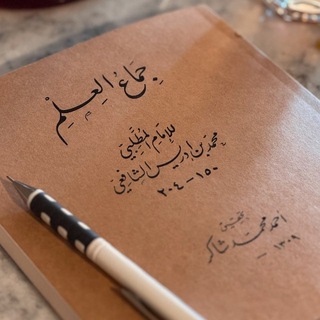 جماع العلم
للإمام المطلبي
محمد بن ادريس الشافعي
١٥٠ - ٢٠٤
تحقيق
احمد محمد شاكر
- ١٣٠٩